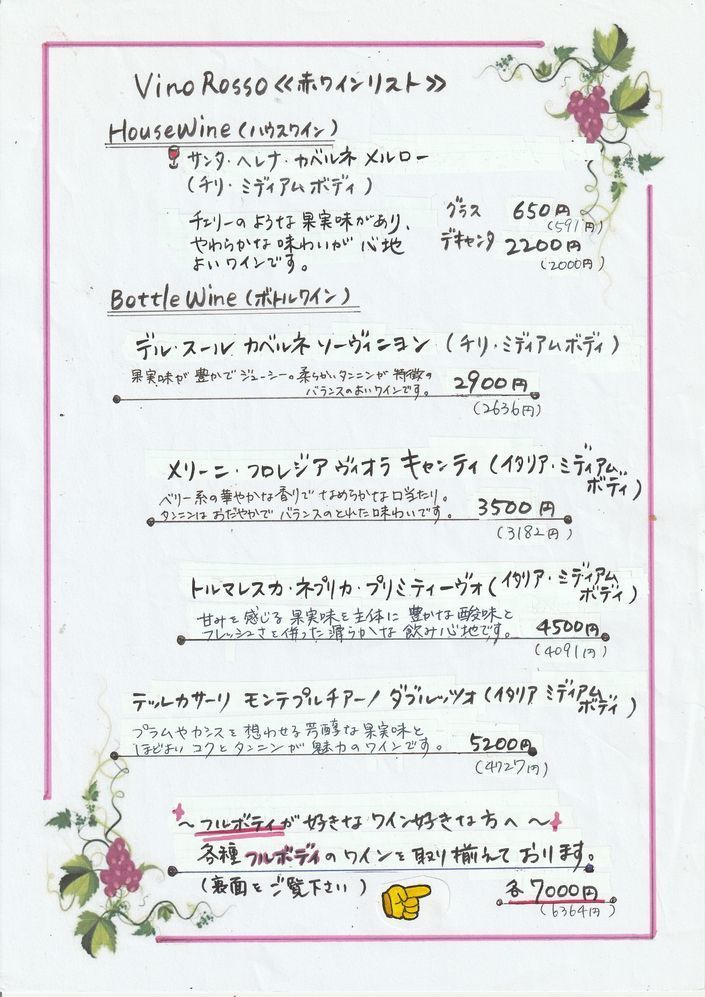 Vino Rosso《赤ワインリスト》
House Wine (ハウスワイン)
サンタ・ヘレナ・カベルネ メルロー
(チリ・ミディアムボディ)
チェリーのような果実味があり、
やわらかな味わいが心地
よいワインです。
グラス 650円
(591円)
デキャンタ 2200円
(2000円)
Bottle Wine (ボトルワイン)
デル・スール カベルネ ソーヴィニヨン (チリ・ミディアムボディ)
果実味が豊かでジューシー。柔らかいタンニンが特徴の
バランスのよいワインです。
2900円
(2636円)
メリーニ・フロレジア ヴィオラ キャンティ (イタリア・ミディアム
ボディ)
ベリー系の華やかな香りでなめらかな口当たり。
タンニンはおだやかでバランスのとれた味わいです。
3500円
(3182円)
トルマレスカ・ネプリカ・プリミティーヴォ(イタリア・ミディアム
ボディ)
甘みを感じる果実味を主体に豊かな酸味と
フレッシュさを併った滑らかな飲み心地です。
4500円
(4091円)
テッルカサーリ モンテプルチアーノ ダブルッツオ(イタリア ミディアム
ボディ)
プラムやカシスを想わせる芳醇な果実味と
ほどよいコクとタンニンが魅力のワインです。
5200円
(4727円)
～フルボディが好きなワイン好きな方へ～
各種フルボディのワインを取り揃えております。
(裏面をご覧下さい)
各7000円
(6364円)